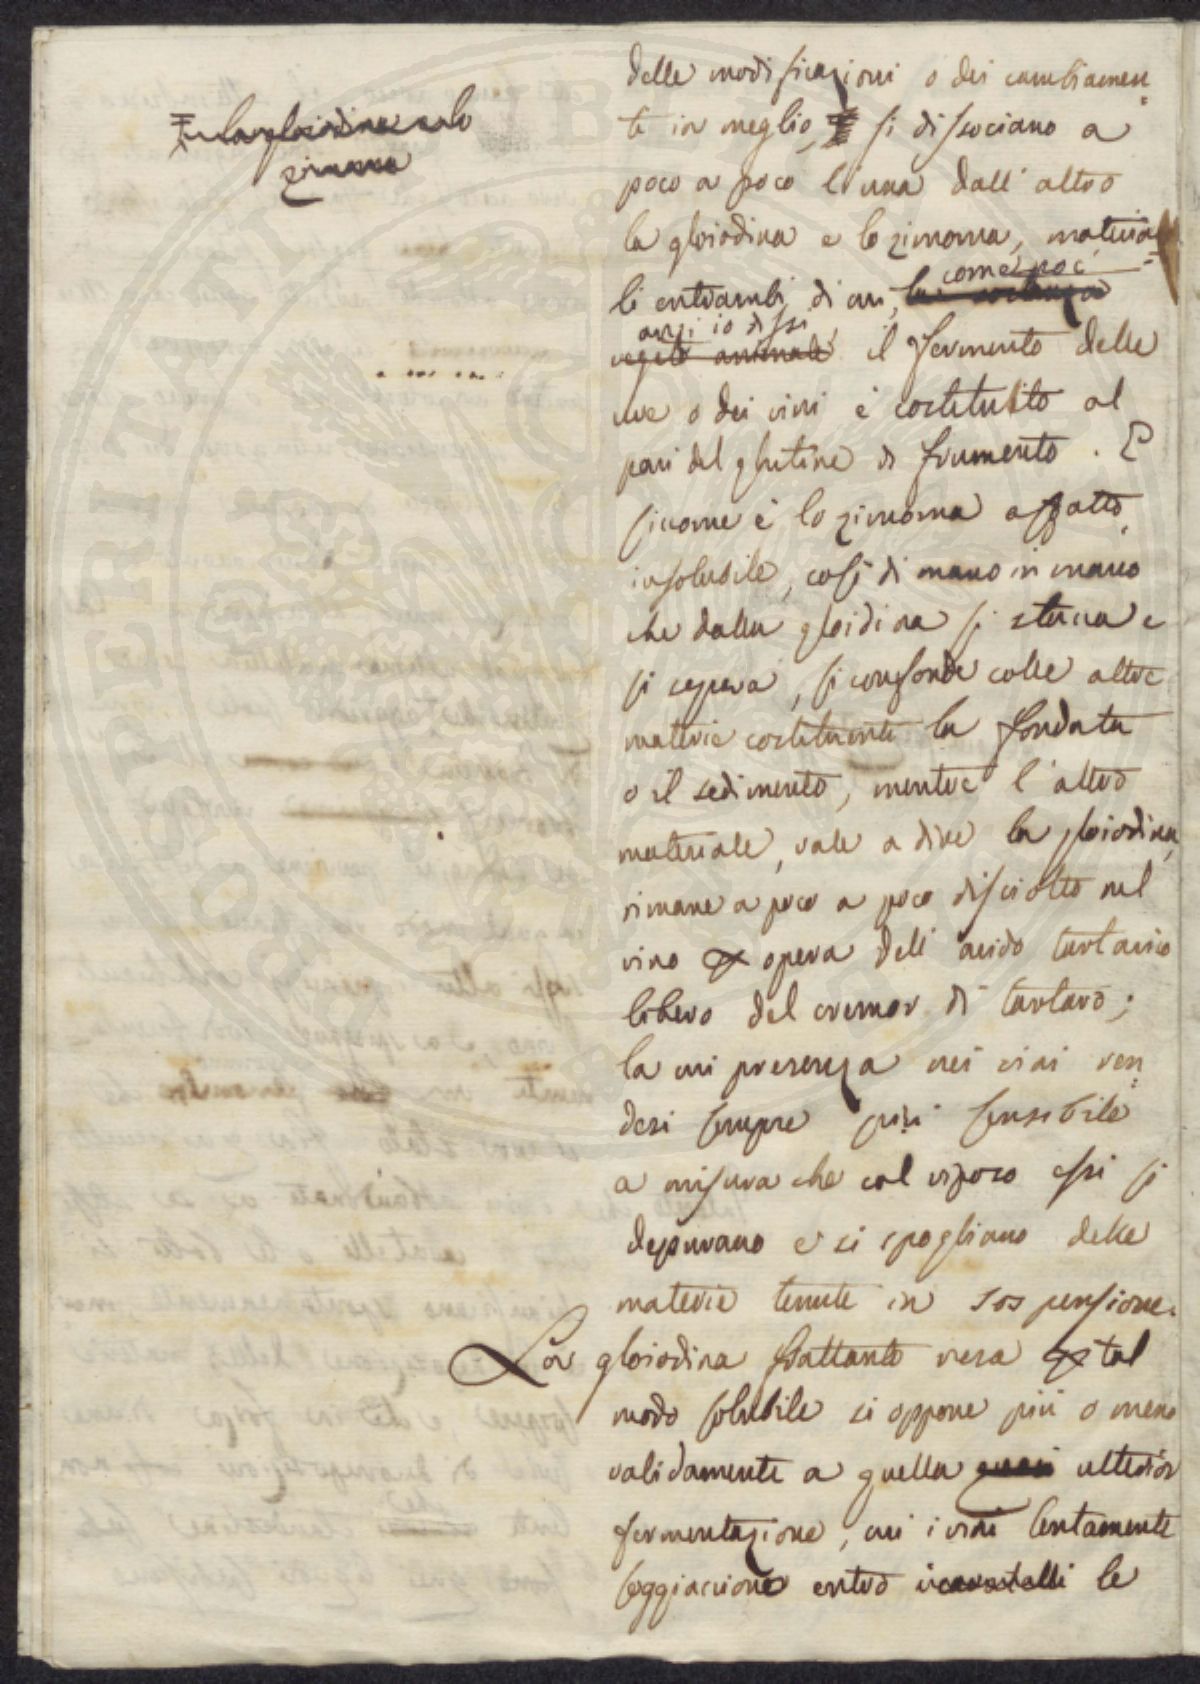 la gloiodina e lo
zimoma
delle modificazioni o dei cambiamen=
ti in meglio, si dissociano a
poco a poco l'una dall'altro
la gloiodina e lo zimoma, materia=
li entrambi, di cui, come poc'
anzi io dissi
vegeto animale il fermento delle
uve o dei vini è costituito al
pari del glutine di frumento. E
siccome è lo zimoma affatto
insolubile, così di mano in mano
che dalla gloidina si stacca e
si separa, si confonde colle altre
materie costituenti la fondata
o il sedimento, mentre l'altro
materiale, vale a dire la gloiodina,
rimane a poco a poco disciolto nel
vino p opera dell'acido tartarico
libero del cremor di tartaro;
la cui presenza nei vini ren=
desi sempre più sensibile
a misura che col riposo essi si
depurano e si spogliano delle
materie tenute in sospensione.
La gloiodina frattanto resa p tal
modo solubile si oppone più o meno
validamente a quella quasi ulterior
fermentazione, cui i vini lentamente
soggiacciono entro i caratelli le